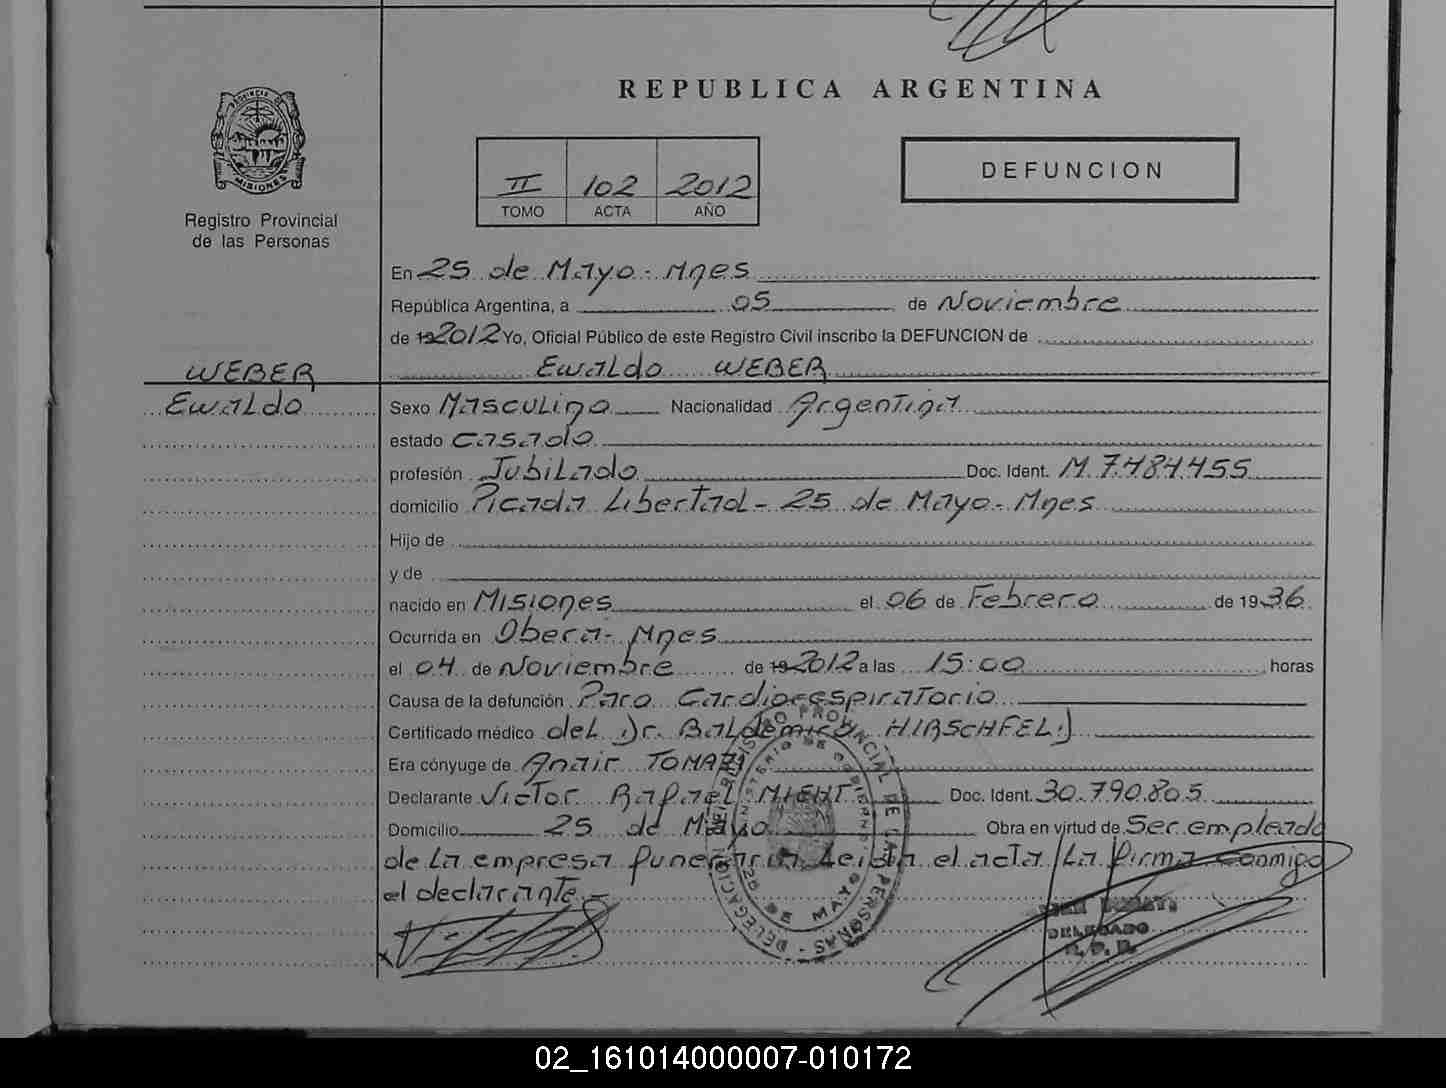 REPUBLICA ARGENTINA
PROVINCIA DE MISIONES
Registro Provincial
de las Personas
II 102 2012
TOMO ACTA AÑO
DEFUNCION
En 25 de Mayo - Mnes
República Argentina, a 05 de Noviembre
de 19 2012 Yo, Oficial Público de este Registro Civil inscribo la DEFUNCION de
Ewaldo WEBER
WEBER
Ewaldo
Sexo Masculino Nacionalidad Argentina
estado casado
profesión Jubilado Doc. Ident. M. 7.484.455
domicilio Picada Libertad - 25 de Mayo - Mnes
Hijo de
y de
nacido en Misiones el 06 de Febrero de 1936
Ocurrida en Obera - Mnes
el 04 de Noviembre de 19 2012 a las 15:00 horas
Causa de la defunción Paro Cardiorespiratorio
Certificado médico del Dr. Baldemiro HIRSCHFELD
Era cónyuge de Anair TOMAZI
Declarante Victor Rafael MIEHT Doc. Ident. 30.790.805
Domicilio 25 de Mayo Obra en virtud de Ser empleado
de La empresa funeraria Leida el acta La firma conmigo
el declarante.-
DELEGACION DEL REGISTRO PROVINCIAL DE LAS PERSONAS
MINISTERIO DE GOBIERNO
25 DE MAYO
DELEGADO
R. P. P.
02_161014000007-010172